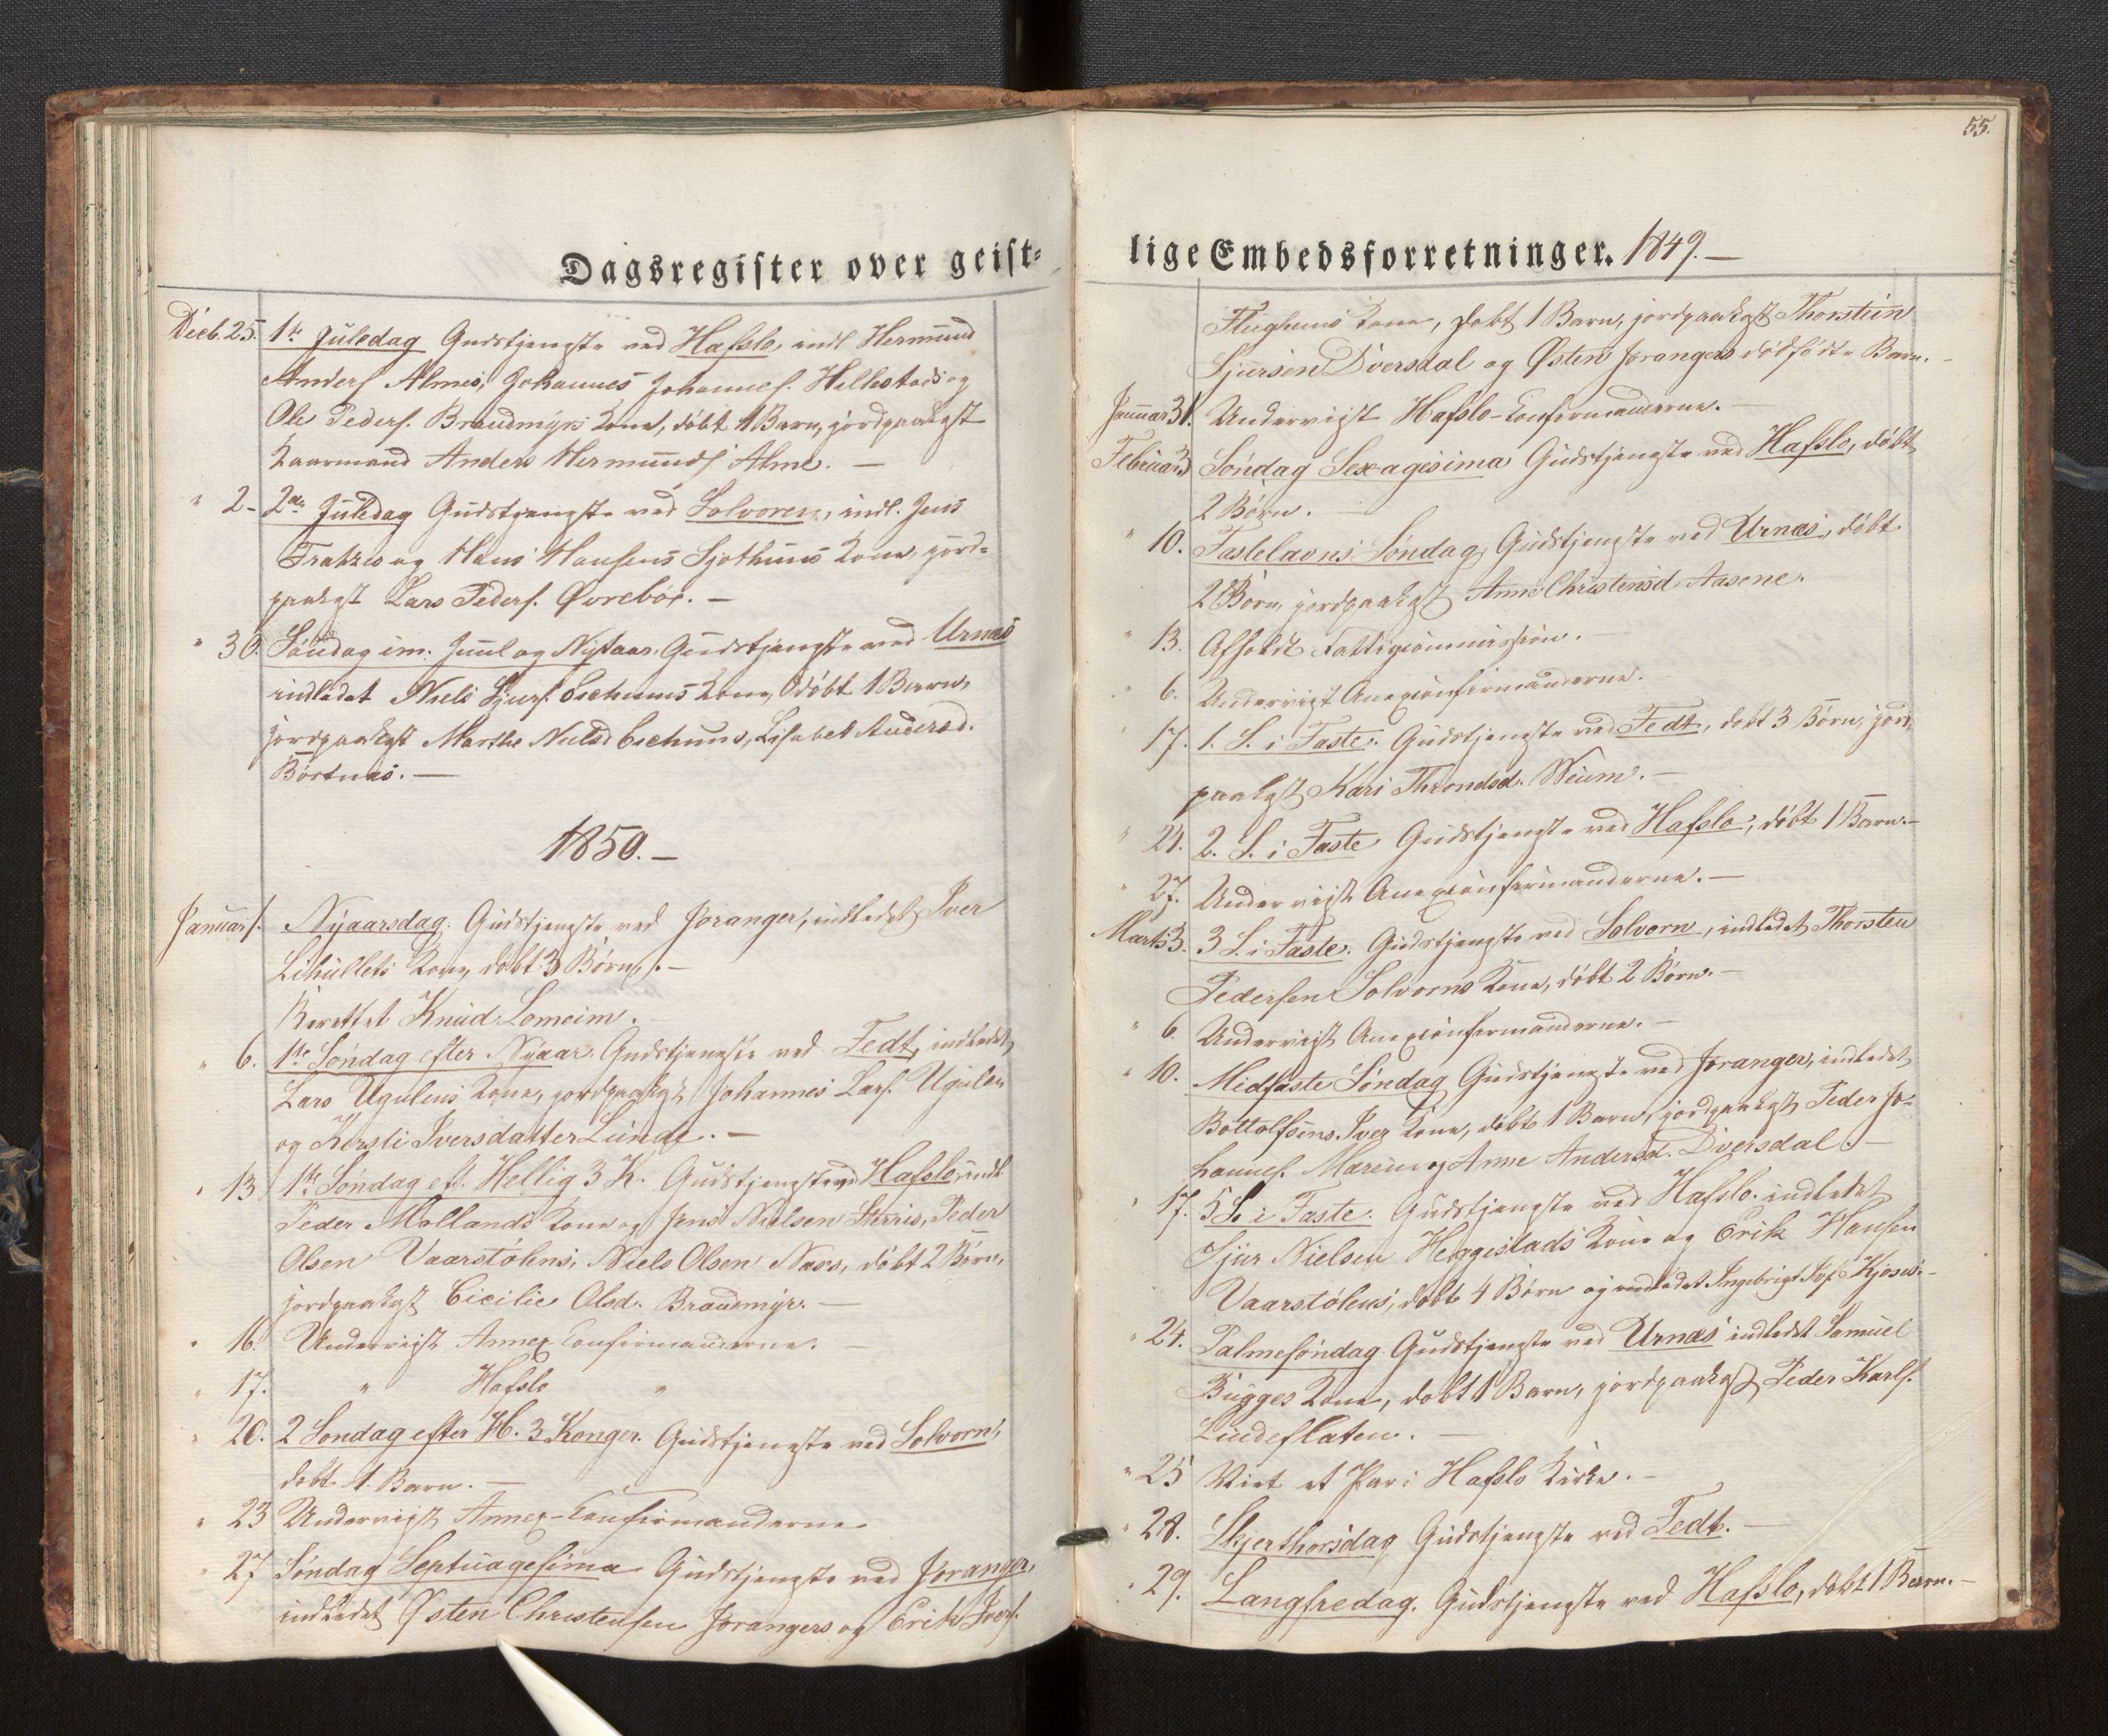 Dagsregister over geist-
Decb. 25. 1te Juledag Gudstjeneste ved Hafslo, indl Hermund
Anders. Almes, Johannes Johannes. Hillestads og
Ole Peders. Brandmyrs Kone, döbt 1 Barn, jordpaakast
Kaarmand Anders Hermunds. Alme. —
" 2- 2den Juledag Gudstjeneste ved Solvoren, indl. Jens
og Hans Hansens Kone, jord-
paakast Lars Peders. Øvrebøe. —
" 30. Søndag im. Juul og Nytaar. Gudstjeneste ved Urnæs
indledet Niels Sjurs. Kone, döbt 1 Barn,
jordpaakast Marthe Nielsd , Lisabet Andersd.
Börtnæs. —
1850. —
Januar 1. Nyaarsdag. Gudstjeneste ved Joranger, indledet Iver
Lihullets Kone, döbt 3 Börn. —
Berettet Knud Lomeim.
" 6. 1te Søndag efter Nyaar. Gudstjeneste ved Fedt, indledet
Lars Ugulens Kone, jordpaakast Johannes Lars. Ugulen
og Kersti Iversdatter Lunde. —
" 13 1te Søndag eft. Hellig 3 K. Gudstjeneste ved Hafslo, indl.
Peder Mollands Kone og Jens Nielsen , Peder
Olsen Vaarstölens, Niels Olsen Næss, döbt 2 Börn,
jordpaakast Cicilie Olsd. Brandmyr. —
" 16. Underviist Annex Confirmanderne. —
" 17. " Hafslo "
" 20. 2 Søndag efter H. 3 Konger. Gudstjeneste ved Solvorn,
döbt 1 Barn. —
" 23 Underviist Annex-Confirmanderne
" 27 Søndag Septuagesima Gudstjeneste ved Joranger,
indledet Østen Christensen Jorangers og Erik Ivers.
55.
lige Embedsforretninger. 1849. —
Kone, Döbt 1 Barn, jordpaakast Thorstein
Sjursen Dversdal og Østen Jorangers dödfödte Barn. —
Januar 31. Underviist Hafslo-Confirmanderne. —
Februar 3 Søndag Sexagesima Gudstjeneste ved Hafslo, döbt
2 Börn. —
" 10. Fastelavns Søndag, Gudstjeneste ved Urnæs, döbt
2 Börn, jordpaakast Anne Christensd Aasene.
" 13. Afholdt Fattigcommission.
" 6. Underviist Anexconfirmanderne.
" 17. 1. S. i Faste. Gudstjeneste ved Fedt, döbt 3 Börn, jord-
paakast Kari Throndsd. Weum. —
" 24. 2. S. i Faste Gudstjeneste ved Hafslo, döbt 1 Barn. —
" 27. Underviist Anexconfirmanderne. —
Marts 3. 3 S. i Faste. Gudstjeneste ved Solvorn, indledet Thorsten
Pedersen Solvorns Kone, döbt 2 Börn. —
" 6 Underviist Anexconfirmanderne. —
" 10. Midfaste Søndag Gudstjeneste ved Joranger, indledet
Bottolfsens Iver Kone, döbt 1 Barn, jordpaakast Peder Jo-
hannes. og Anne Andersd. Dversdal. —
" 17. 5 S. i Faste. Gudstjeneste ved Hafslo. indledet
Sjur Nielsen Heggestads Kone og Erik Hansen
Vaarstölens, döbt 4 Börn og indledet Ingebrigt
" 24. Palmesøndag. Gudstjeneste ved Urnæs indledet Samuel
Bugges Kone, döbt 1 Barn, jordpaakast Peder Karls.
Lindeflaten. —
" 25 Viet et Par i Hafslo Kirke. —
" 28. Skjerthorsdag Gudstjeneste ved Fedt. —
" 29. Langfredag. Gudstjeneste ved Hafslo, döbt 1 Barn. —